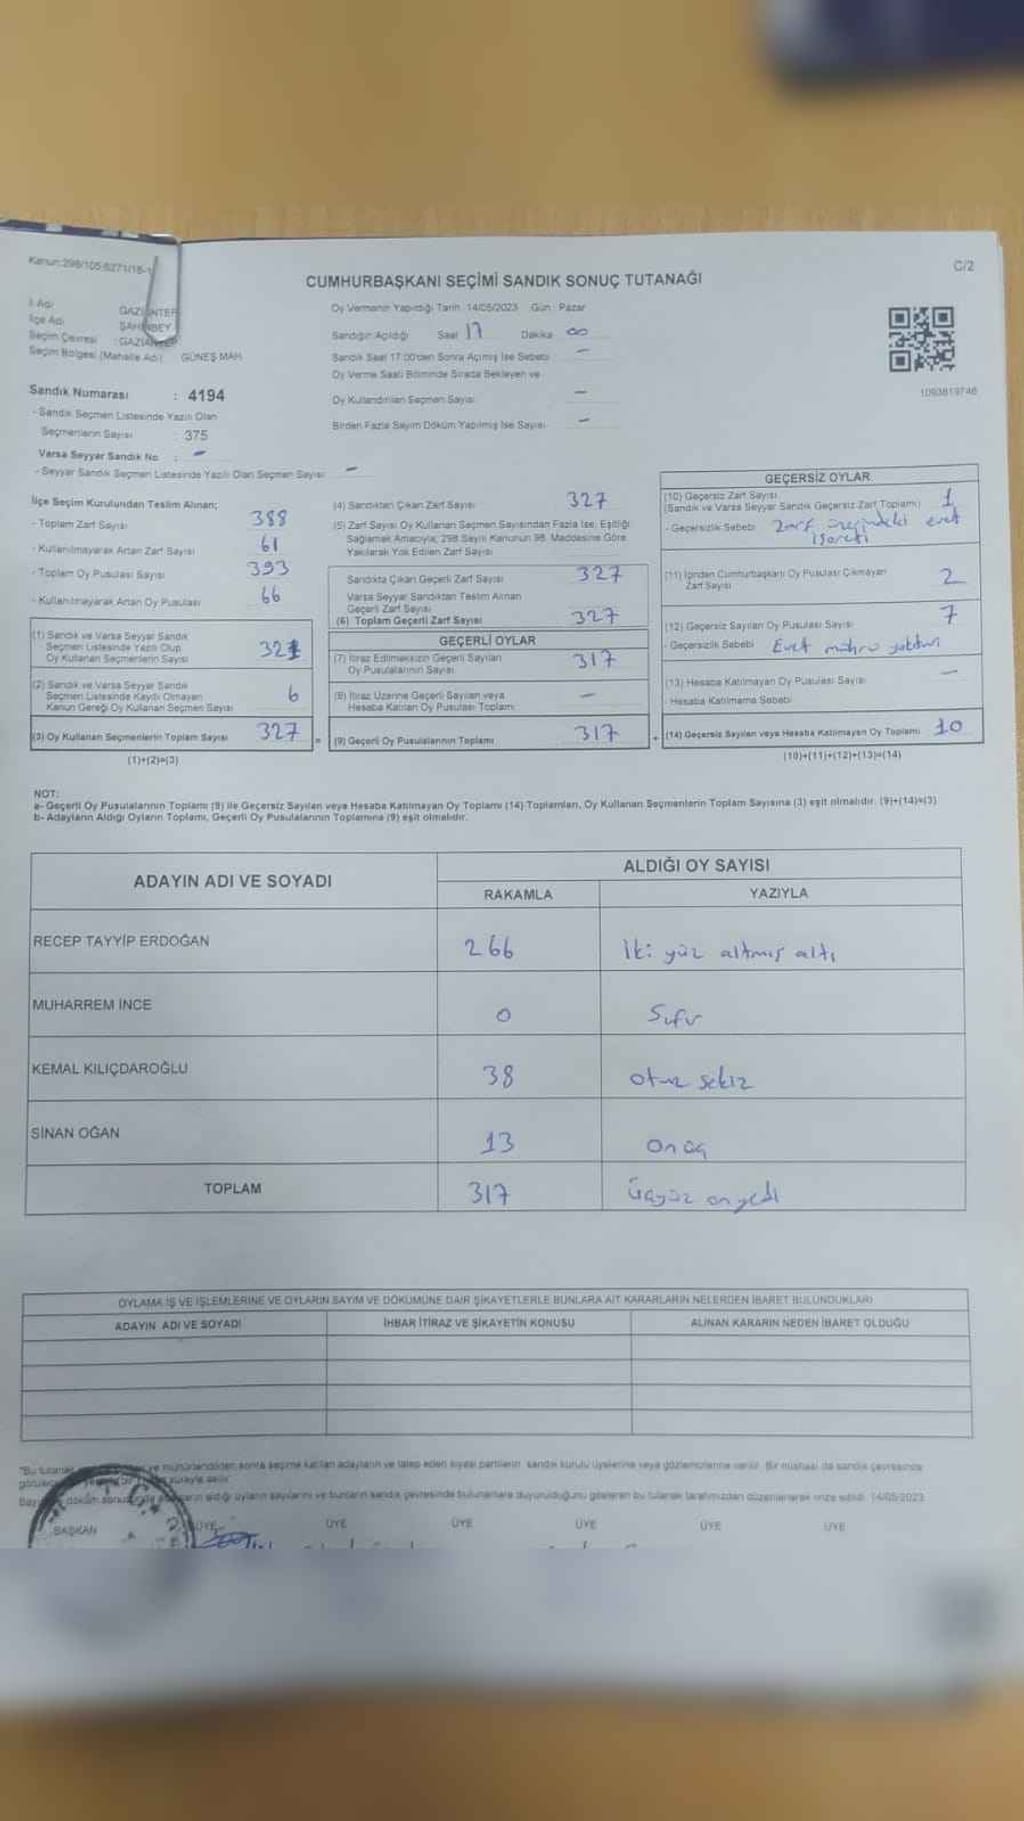 Kanun:298/105,6271/18-1
C/2
CUMHURBAŞKANI SEÇİMİ SANDIK SONUÇ TUTANAĞI
İl Adı
İlçe Adı
Seçim Çevresi
Seçim Bölgesi (Mahalle Adı) : GÜNEŞ MAH
Oy Vermenin Yapıldığı Tarih: 14/05/2023 Gün: Pazar
Sandığın Açıldığı Saat 17 Dakika 00
Sandık Saat 17:00'den Sonra Açılmış İse Sebebi -
Oy Verme Saati Bitiminde Sırada Bekleyen ve
Oy Kullandırılan Seçmen Sayısı -
Birden Fazla Sayım Döküm Yapılmış İse Sayısı -
1093819746
Sandık Numarası : 4194
- Sandık Seçmen Listesinde Yazılı Olan
Seçmenlerin Sayısı : 375
Varsa Seyyar Sandık No : -
- Seyyar Sandık Seçmen Listesinde Yazılı Olan Seçmen Sayısı: -
İlçe Seçim Kurulundan Teslim Alınan;
- Toplam Zarf Sayısı 388
- Kullanılmayarak Artan Zarf Sayısı 61
- Toplam Oy Pusulası Sayısı 393
- Kullanılmayarak Artan Oy Pusulası 66
(1) Sandık ve Varsa Seyyar Sandık
Seçmen Listesinde Yazılı Olup
Oy Kullanan Seçmenlerin Sayısı 321
(2) Sandık ve Varsa Seyyar Sandık
Seçmen Listesinde Kayıtlı Olmayan
Kanun Gereği Oy Kullanan Seçmen Sayısı 6
(3) Oy Kullanan Seçmenlerin Toplam Sayısı 327
(1)+(2)=(3)
(4) Sandıktan Çıkan Zarf Sayısı 327
(5) Zarf Sayısı Oy Kullanan Seçmen Sayısından Fazla İse, Eşitliği
Sağlamak Amacıyla; 298 Sayılı Kanunun 98. Maddesine Göre
Yakılarak Yok Edilen Zarf Sayısı
Sandıkta Çıkan Geçerli Zarf Sayısı 327
Varsa Seyyar Sandıktan Teslim Alınan
Geçerli Zarf Sayısı
(6) Toplam Geçerli Zarf Sayısı 327
GEÇERLİ OYLAR
(7) İtiraz Edilmeksizin Geçerli Sayılan
Oy Pusulalarının Sayısı 317
(8) İtiraz Üzerine Geçerli Sayılan veya
Hesaba Katılan Oy Pusulası Toplamı -
= (9) Geçerli Oy Pusulalarının Toplamı 317
GEÇERSİZ OYLAR
(10) Geçersiz Zarf Sayısı
(Sandık ve Varsa Seyyar Sandık Geçersiz Zarf Toplamı) 1
- Geçersizlik Sebebi Zarf üzerindeki evet
işareti
(11) İçinden Cumhurbaşkanı Oy Pusulası Çıkmayan
Zarf Sayısı 2
(12) Geçersiz Sayılan Oy Pusulası Sayısı 7
- Geçersizlik Sebebi Evet mührü
(13) Hesaba Katılmayan Oy Pusulası Sayısı -
- Hesaba Katılmama Sebebi
+ (14) Geçersiz Sayılan veya Hesaba Katılmayan Oy Toplamı 10
(10)+(11)+(12)+(13)=(14)
NOT:
a- Geçerli Oy Pusulalarının Toplamı (9) ile Geçersiz Sayılan veya Hesaba Katılmayan Oy Toplamı (14) Toplamları, Oy Kullanan Seçmenlerin Toplam Sayısına (3) eşit olmalıdır. (9)+(14)=(3)
b- Adayların Aldığı Oyların Toplamı, Geçerli Oy Pusulalarının Toplamına (9) eşit olmalıdır.
ADAYIN ADI VE SOYADI
ALDIĞI OY SAYISI
RAKAMLA YAZIYLA
RECEP TAYYİP ERDOĞAN 266 İki yüz altmış altı
MUHARREM İNCE 0 Sıfır
KEMAL KILIÇDAROĞLU 38 otuz sekiz
SİNAN OĞAN 13 on üç
TOPLAM 317 Üçyüz onyedi
OYLAMA İŞ VE İŞLEMLERİNE VE OYLARIN SAYIM VE DÖKÜMÜNE DAİR ŞİKAYETLERLE BUNLARA AİT KARARLARIN NELERDEN İBARET BULUNDUKLARI
ADAYIN ADI VE SOYADI İHBAR İTİRAZ VE ŞİKAYETİN KONUSU ALINAN KARARIN NEDEN İBARET OLDUĞU
ve mühürlendikten sonra seçime katılan adayların ve talep eden siyasi partilerin, sandık kurulu üyelerine veya gözlemcilerine verilir. Bir nüshası da sandık çevresinde
aldığı oyların sayılarını ve bunların sandık çevresinde bulunanlara duyurulduğunu gösteren bu tutanak tarafımızdan düzenlenerek imza edildi. 14/05/2023
BAŞKAN ÜYE ÜYE ÜYE ÜYE ÜYE ÜYE